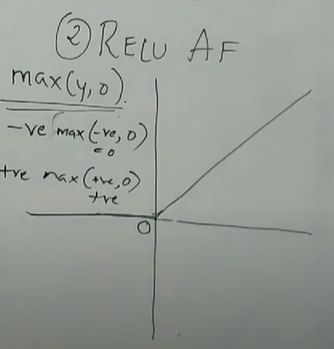 ② RELU AF
max(y,0)
-ve max(-ve, 0)
= 0
+ve max(+ve,0)
+ve
0